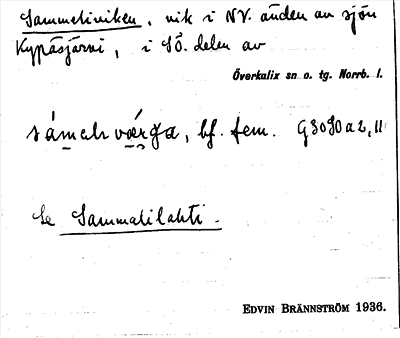 Sammetiviken, vik i NV. änden av sjön
Kypäsjärvi, i SÖ. delen av
Överkalix sn o. tg. Norrb. l.
bf. fem. G3090a2,11
Se Sammatilahti.
EDVIN BRÄNNSTRÖM 1936.